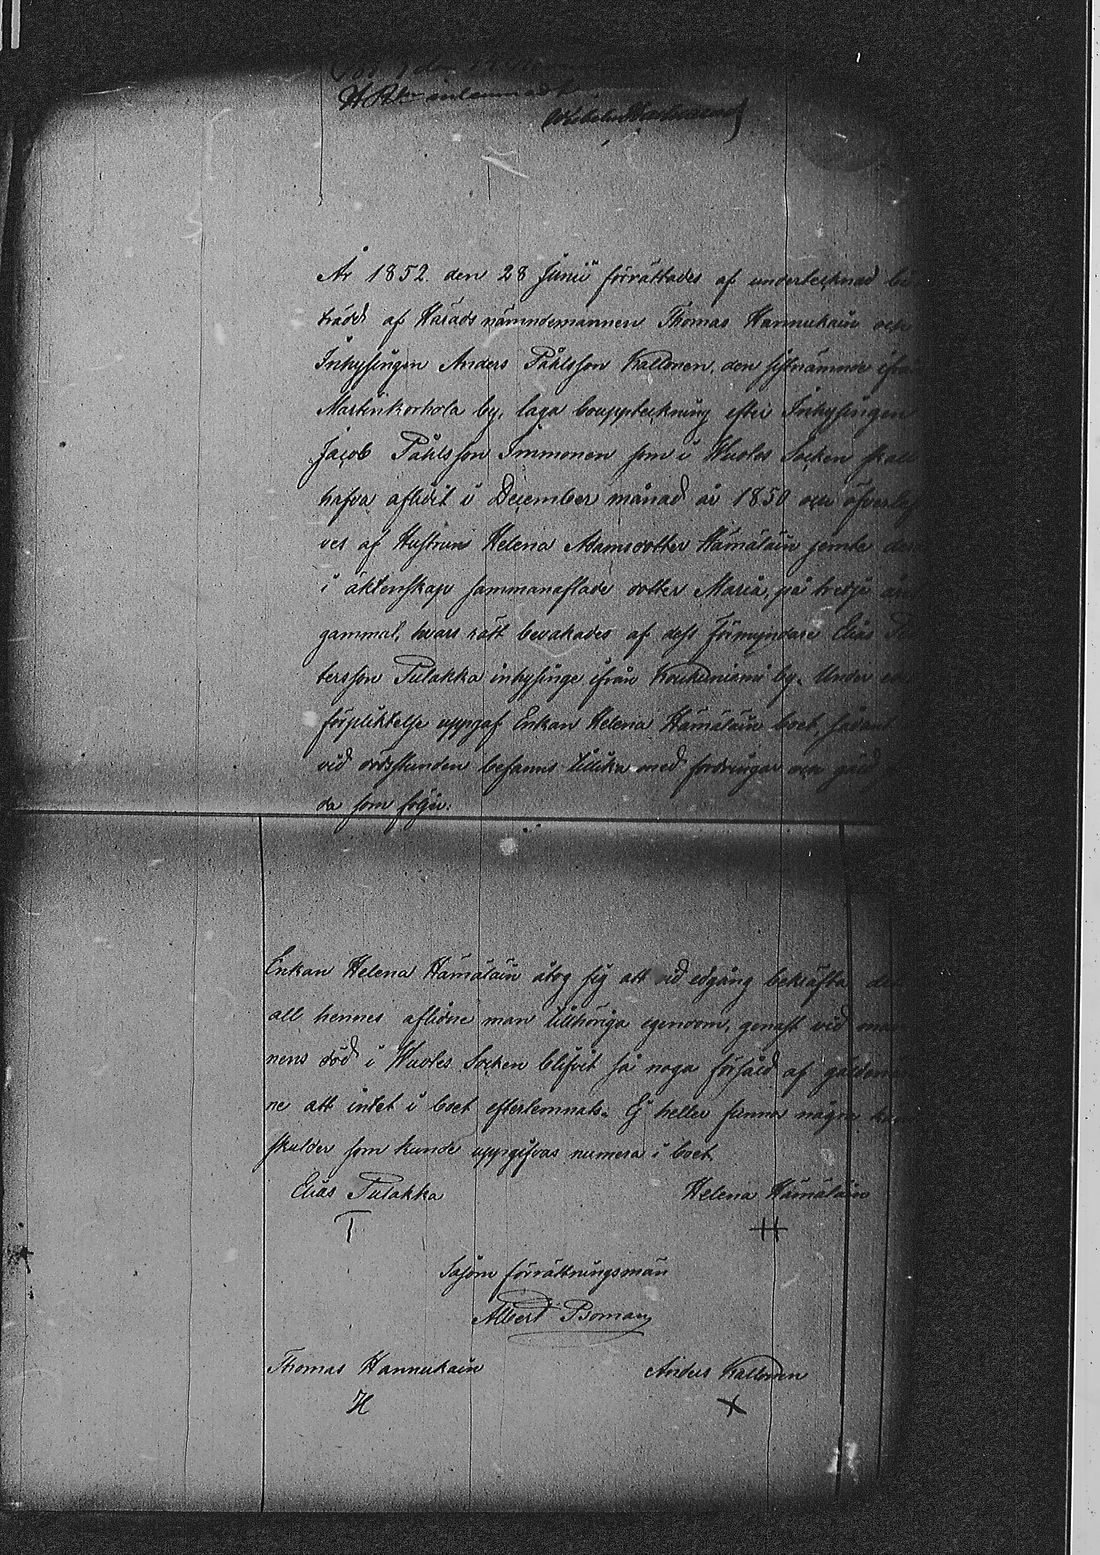 inlemnadt
År 1852 den 28 Junii förrättades af undertecknad bi
trädd af Härads nämndemannen Thomas Hannukain och
Inhysingen Anders Påhlsson Kallonen, den sistnämnde ifrån
Martinkorhola by, laga bouppteckning efter Inhysingen
Jacob Påhlsson Immonen som i Wuoles Socken skall
hafva aflidit i December månad år 1850 och öfverlef
ves af Hustrun Helena Adamsdotter Hämäläin jemte dess
i äktenskap sammanaflade dotter Maria, på tredje året
gammal, hvars rätt bevakades af dess Förmyndare Elias Pe
tersson Pulakka inhysinge ifrån by. Under ed
förpliktelse uppgaf Enkan Helena Hämäläin boet, sådant
vid dödsstunden befanns tillika med fordringar och gäld
da som följer:
Enkan Helena Hämäläin åtog sig att vid edgång bekräfta det
all hennes aflidne man tillhöriga egendom, genast vid man
nens död i Wuoles Socken blifvit så noga försåld af gäldena
ne att intet i boet efterlemnats. Ej heller funnos några
skulder som kunde uppgifvas numera i boet
Elias Pulakka Helena Hämäläin
T H
Såsom förrättningsman
Albert Boman
Thomas Hannukain Anders Kallonen
H X